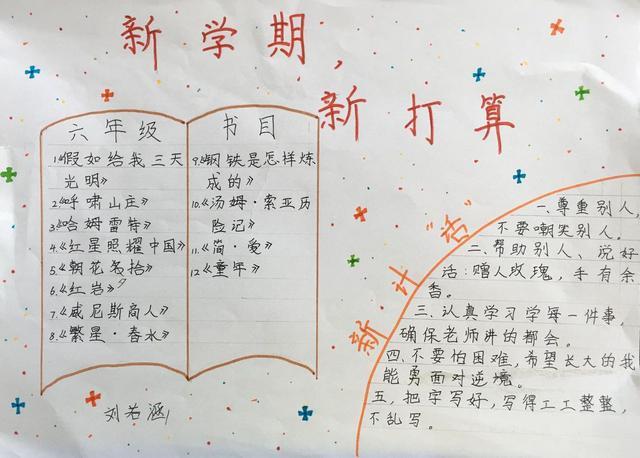 新学期,
新打算
六年级
1.《假如给我三天
光明》
2.《呼啸山庄》
3.《哈姆雷特》
4.《红星照耀中国》
5.《朝花名拾》
夕
6.《红岩》
7.《威尼斯商人》
8.《繁星·春水》
书目
9.《钢铁是怎样炼
成的》
10.《汤姆·索亚历
险记》
11.《简·爱》
12《童年》
刘若涵
新计“话”
一、尊重别人,
不要嘲笑别人。
二、帮助别人、说好
话:赠人玫瑰,手有余
香。
三、认真学习学每一件事,
确保老师讲的都会。
四、不要怕困难,希望长大的我
能勇面对逆境。
五、把字写好,写得工工整整,
不乱写。